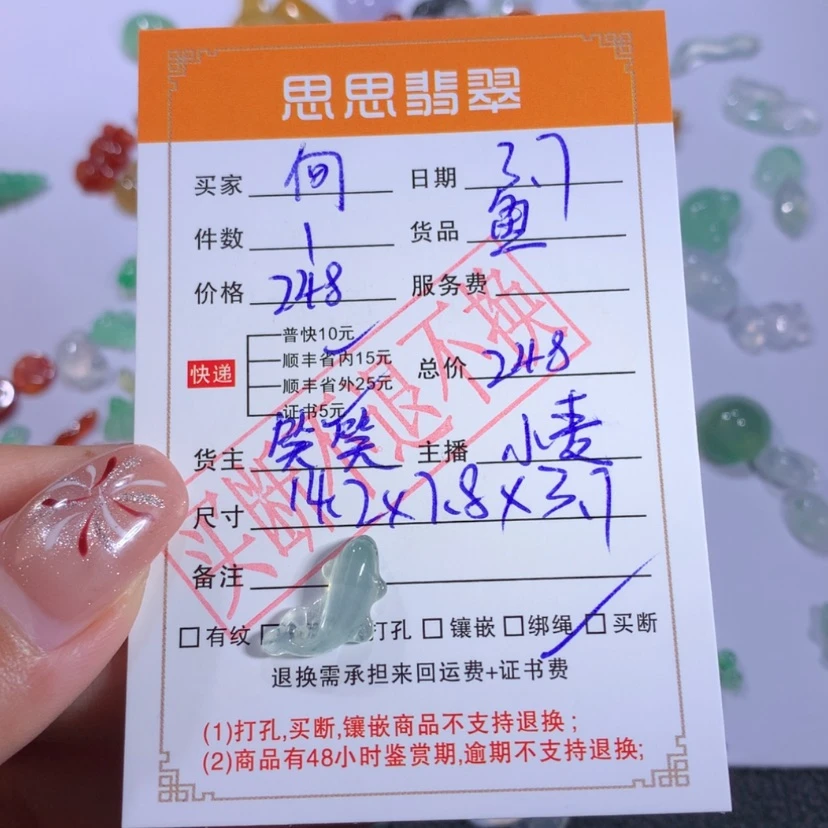 思思翡翠
买家 何 日期 3.7
件数 1 货品 鱼
价格 248 服务费
普快10元
顺丰省内15元
快递 总价 248
顺丰省外25元
证书5元
货主 主播 小麦
尺寸 14.2x7.8x3.7
备注
买断不退不换
□有纹 打孔 □镶嵌 □绑绳 □买断
退换需承担来回运费+证书费
(1)打孔,买断,镶嵌商品不支持退换;
(2)商品有48小时鉴赏期,逾期不支持退换;